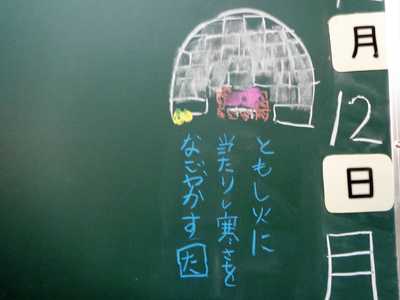 月12日月
ともし火に
当たりし寒さを
なごやかす